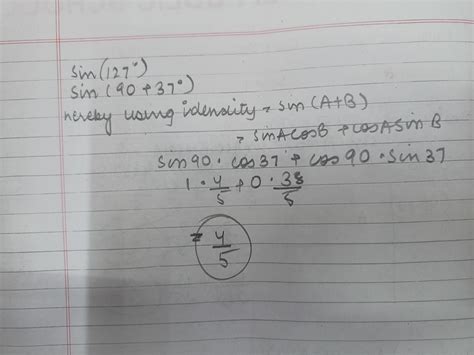 sin(127°)
sin(90+37°)
hereby using idensity = sin(A+B)
= sinAcosB + cosAsinB
sin90 · cos37 + cos90 · sin37
1 · 4/5 + 0 · 38/5
= 4/5